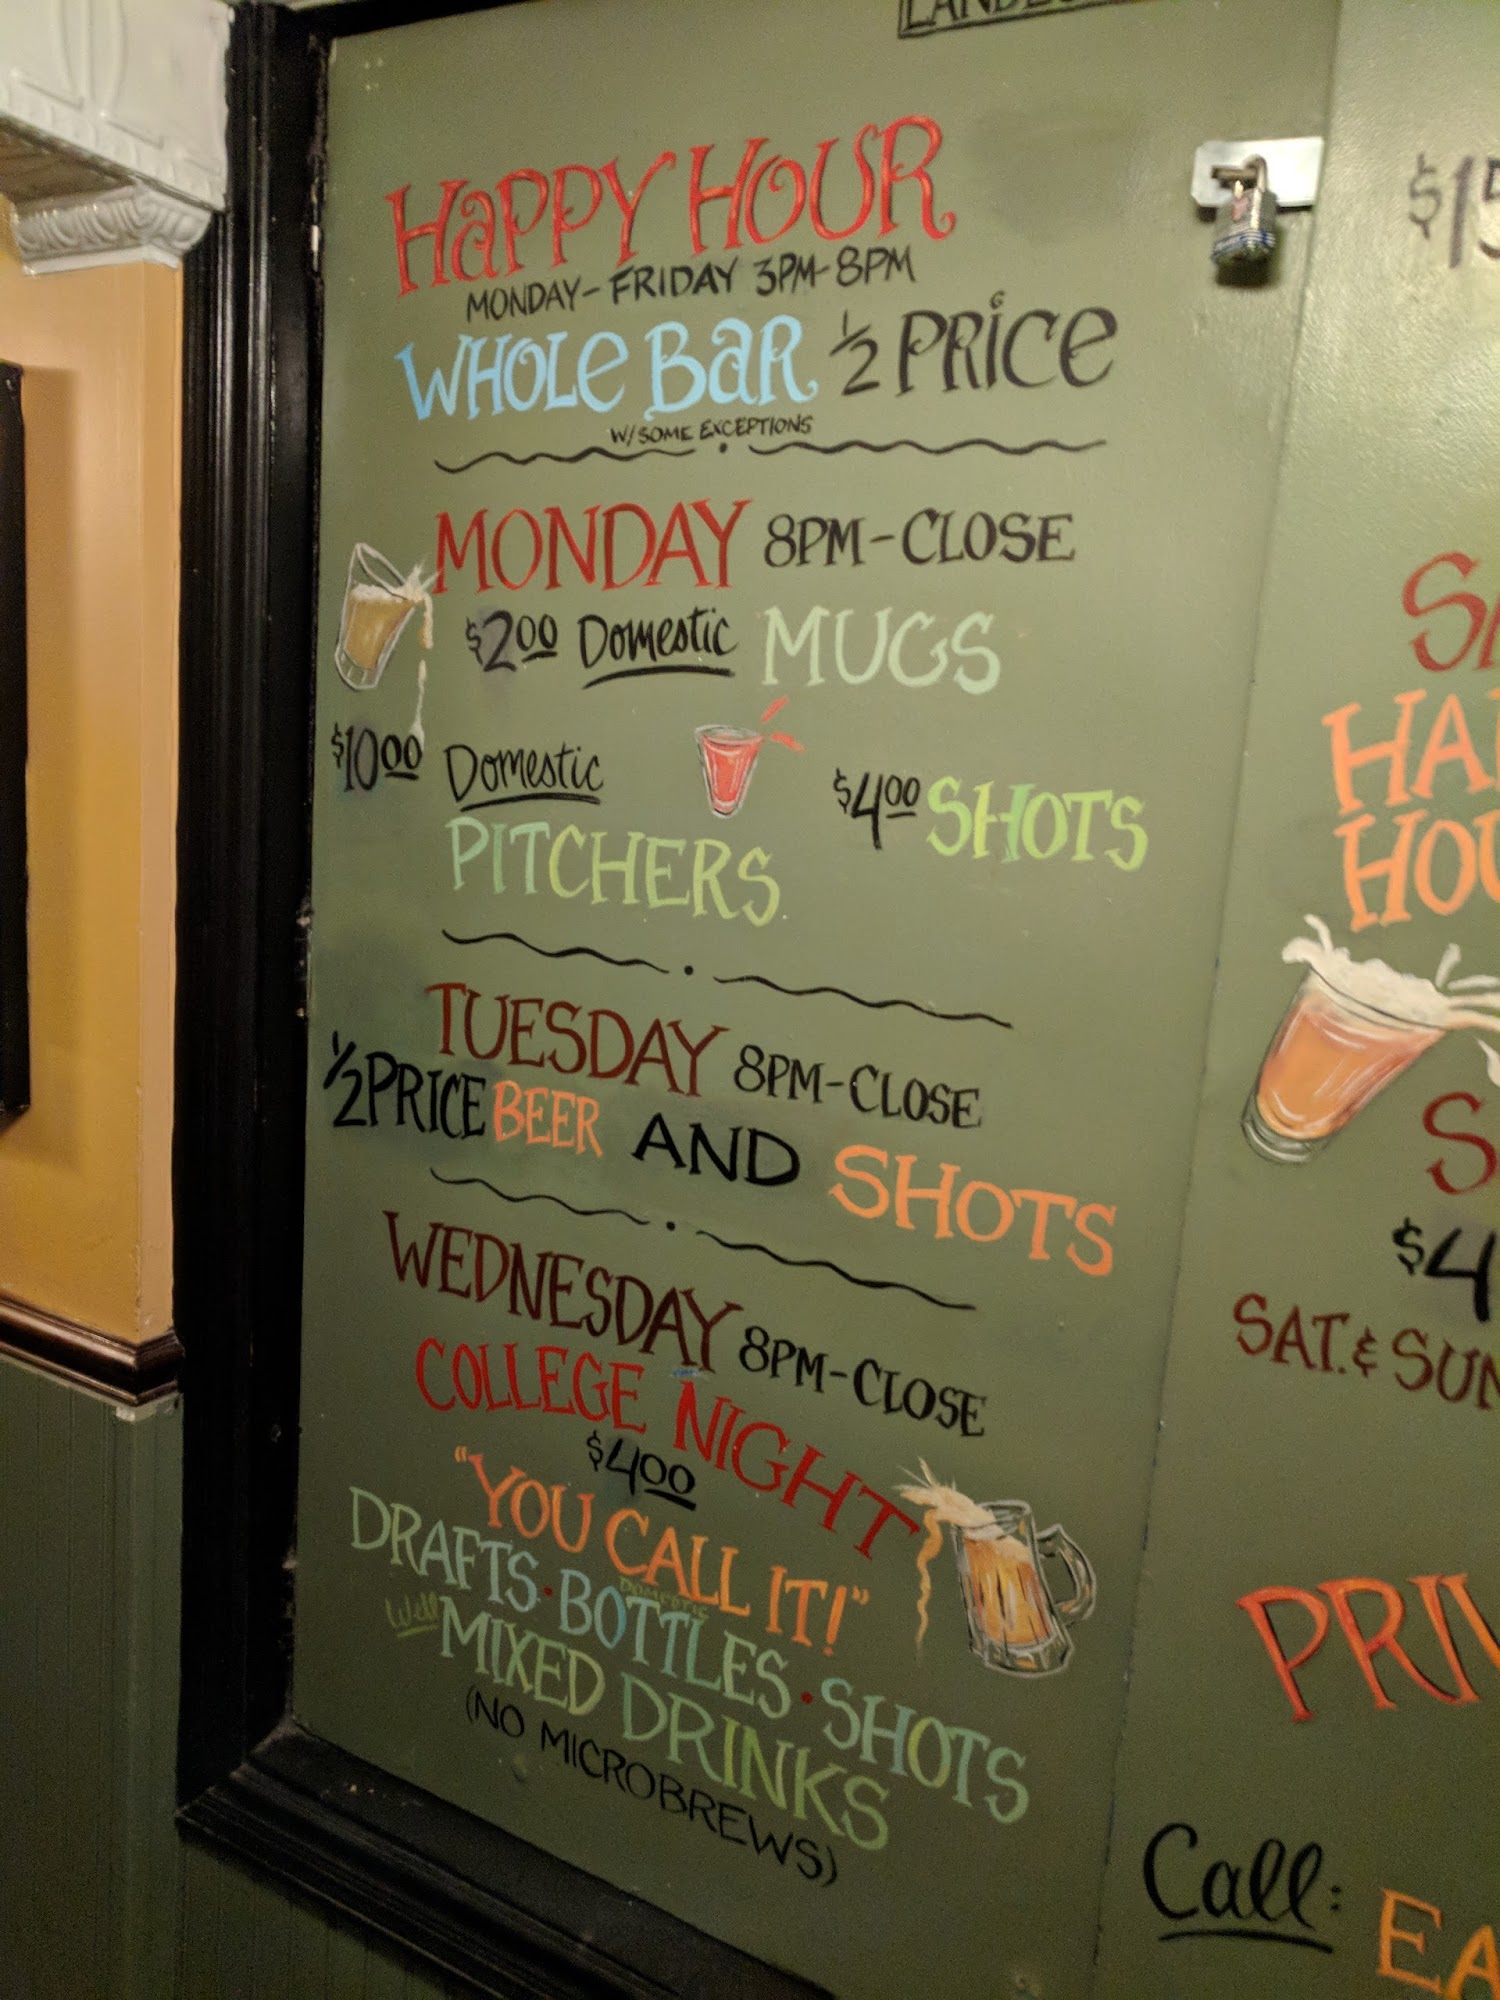 HAPPY HOUR
MONDAY-FRIDAY 3PM-8PM
WHOLE BAR 1/2 PRICE
W/SOME EXCEPTIONS
MONDAY 8PM-CLOSE
$2.00 Domestic MUGS
$10.00 Domestic
PITCHERS
$4.00 SHOTS
TUESDAY 8PM-CLOSE
1/2 PRICE BEER AND SHOTS
WEDNESDAY 8PM-CLOSE
COLLEGE NIGHT
$4.00
"YOU CALL IT!"
DOMESTIC
DRAFTS • BOTTLES • SHOTS
Well MIXED DRINKS
(NO MICROBREWS)
$4
SAT. & SUN
Call: